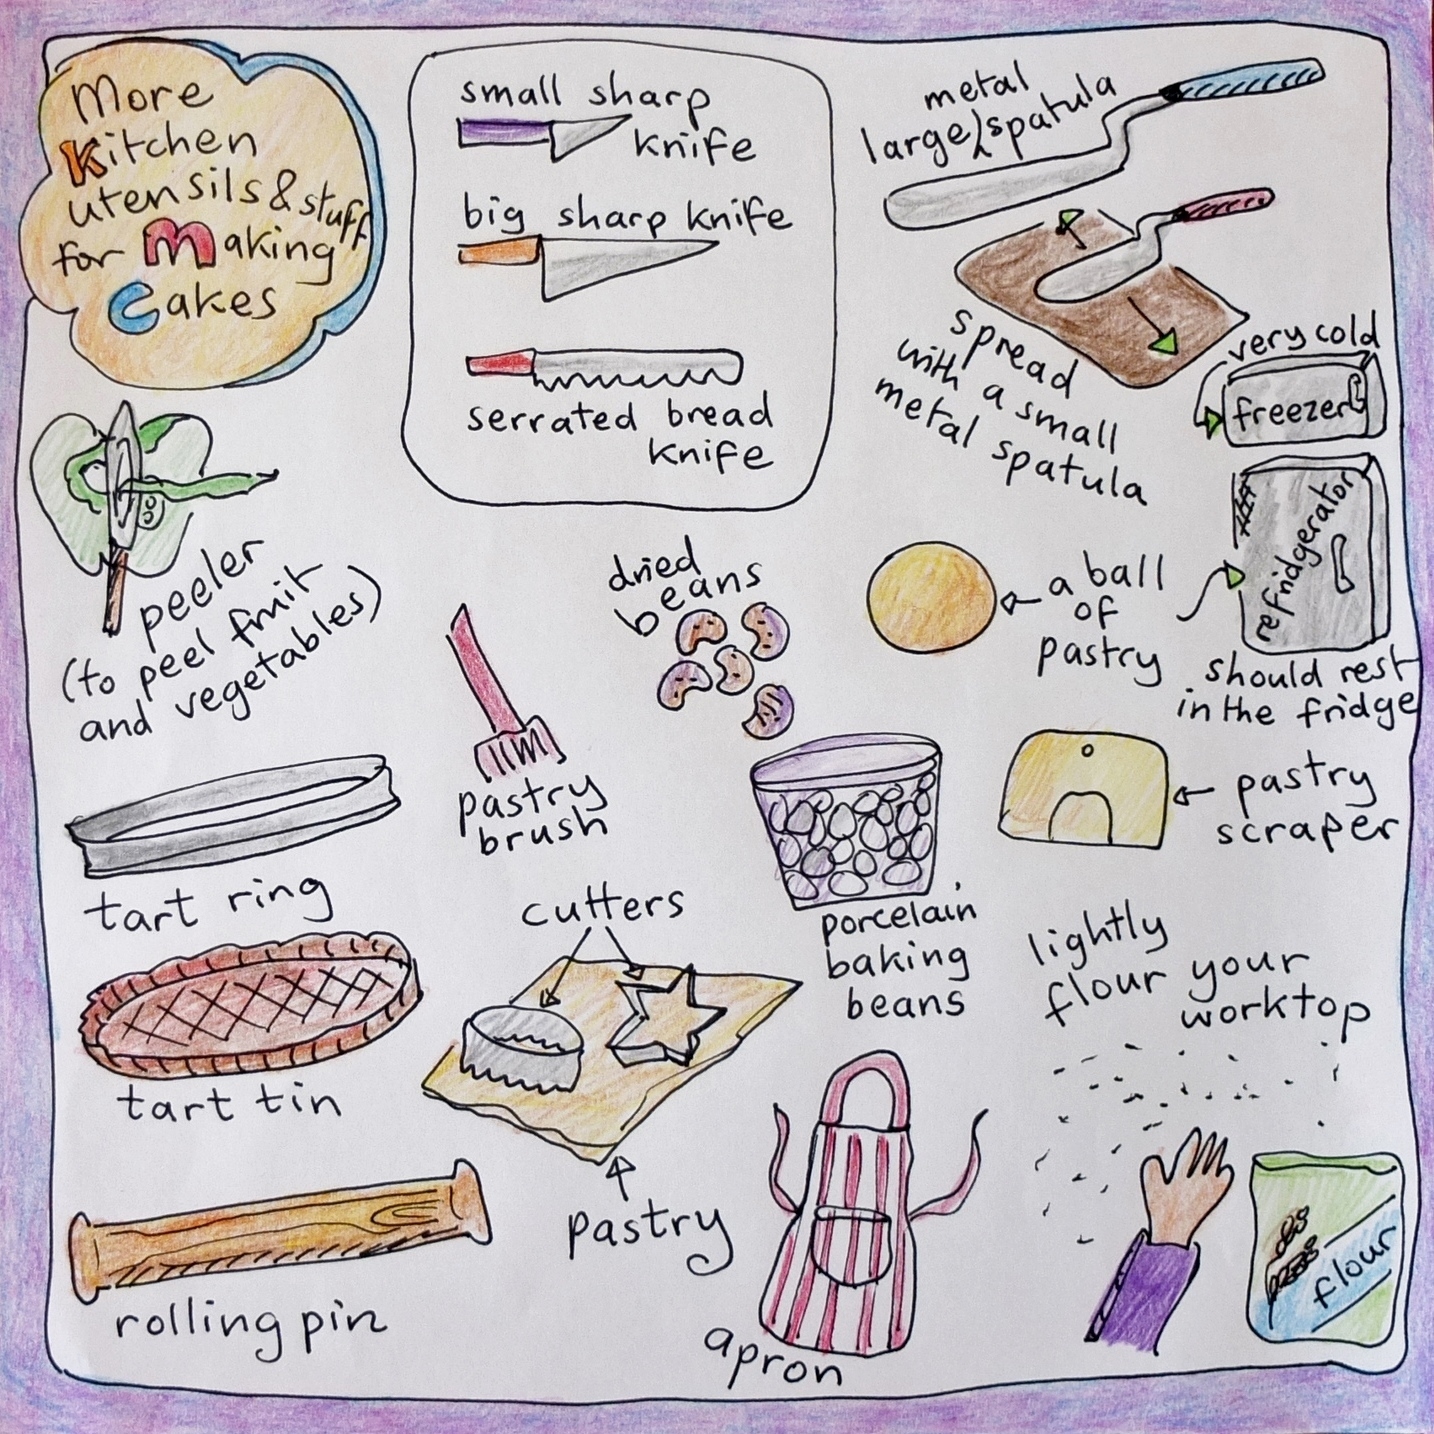 More
Kitchen
utensils & stuff
for Making
Cakes
small sharp
knife
big sharp knife
serrated bread
knife
metal
large spatula
spread
with a small
metal spatula
very cold
freezer
refridgerator
should rest
in the fridge
a ball
of
pastry
peeler
(to peel fruit
and vegetables)
dried
beans
pastry
brush
porcelain
baking
beans
pastry
scraper
tart ring
cutters
lightly
flour your
worktop
tart tin
pastry
rolling pin
apron
flour